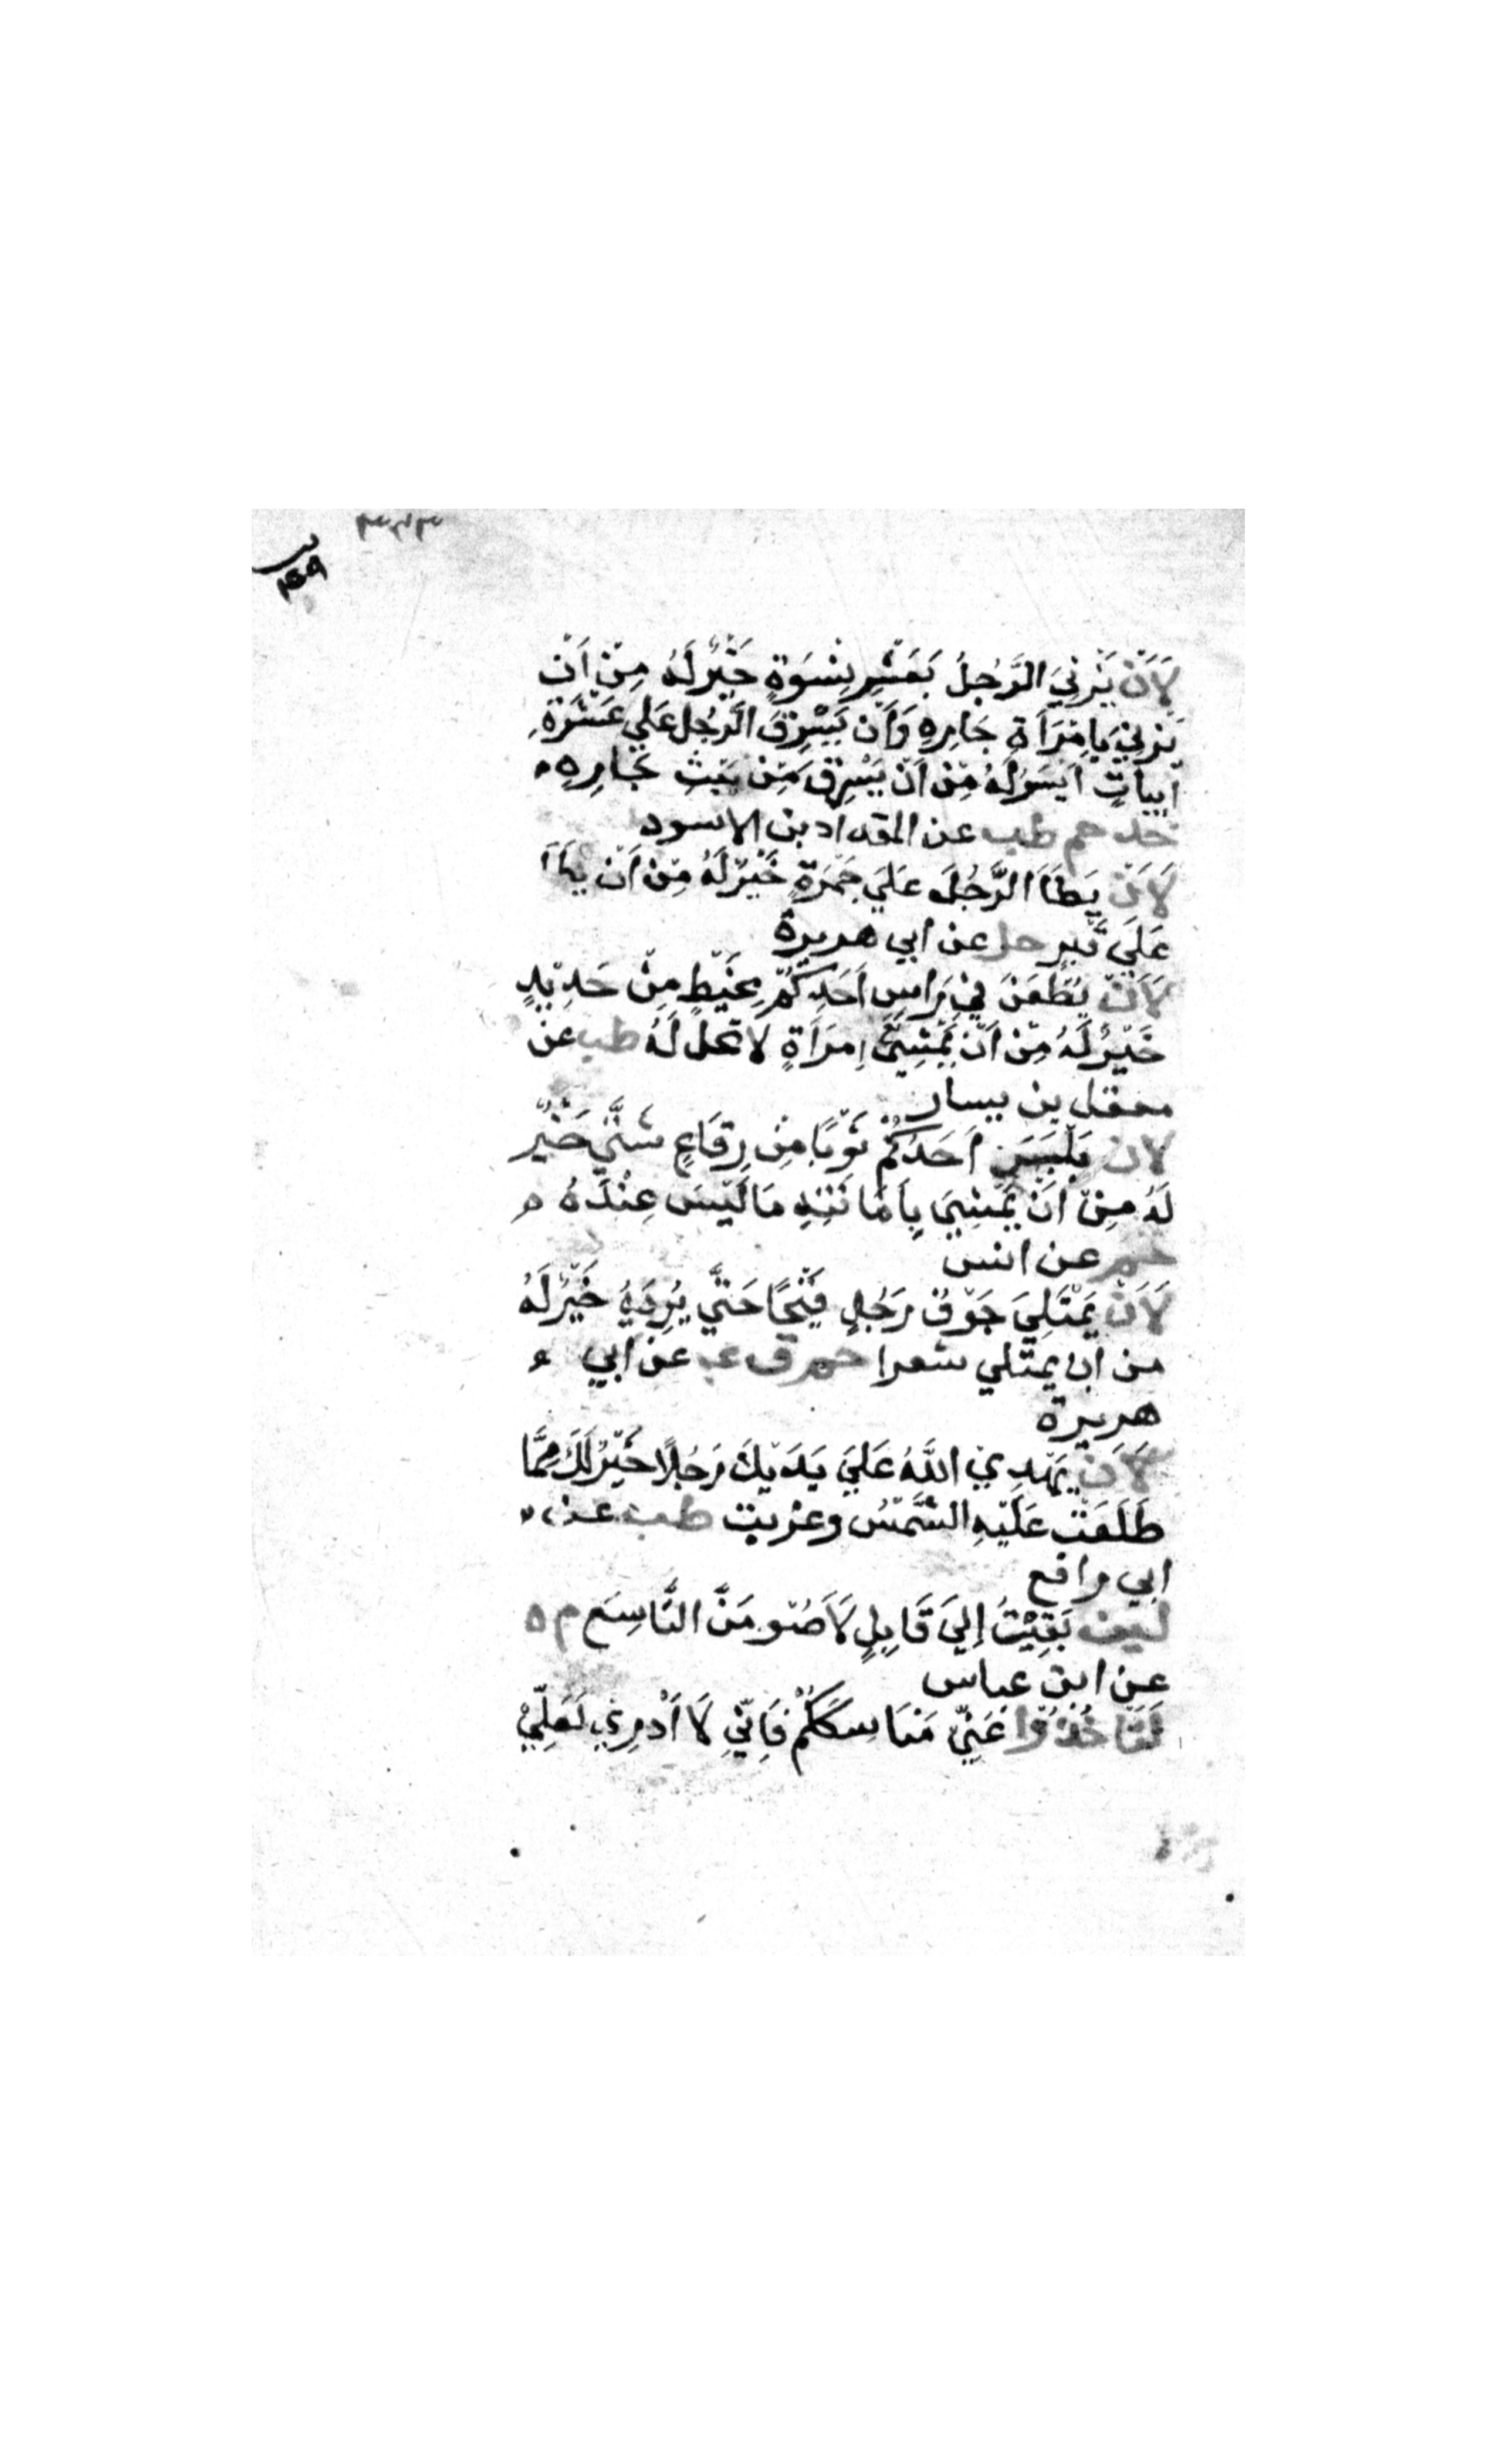 لَأَنْ يَزْنِيَ الرَّجُلُ بِعَشْرِ نِسْوَةٍ خَيْرٌ لَهُ مِنْ اَنْ
يَزْنِيَ بِامْرَأَةِ جَارِهِ وَلَأَنْ يَسْرِقَ الرَّجُلُ عَلَي عَشْرَةِ
اَبْيَاتٍ اَيْسَرُ لَهُ مِنْ اَنْ يَسْرِقَ مِنْ بَيْتِ جَارِهِ
خد حم طب عن المقداد بن الاسود
لَأَنْ يَطَأَ الرَّجُلُ عَلَي جَمْرَةٍ خَيْرٌ لَهُ مِنْ اَنْ يَطَأَ
عَلَي قَبْرٍ حل عن ابي هريرة
لَأَنْ يُطْعَنَ فِي رَاسِ اَحَدِكُمْ بِمِخْيَطٍ مِنْ حَدِيْدٍ
خَيْرٌ لَهُ مِنْ اَنْ يَمَسَّ اِمْرَأَةٍ لَا تحل لَهُ طب عن
معقل بن يسار
لان يَلْبَسَ اَحَدُكُمْ ثَوْبًا مِنْ رِقَاعٍ شَتَّي خَيْرٌ
لَهُ مِنْ اَنْ بِاَمَانَتِهِ مَا لَيْسَ عِنْدَهُ
حم عن انس
لَأَنْ يَمْتَلِيَ جَوْفُ رَجُلٍ قَيْحًا حَتَّي يُرِيَهُ خَيْرٌ لَهُ
من ان يمتلي شعرا حم ق عن ابي
هريرة
لَأَنْ يَهْدِيَ اللَّهُ عَلَي يَدَيْكَ رَجُلًا خَيْرٌ لَكَ مِمَّا
طَلَعَتْ عَلَيْهِ الشَّمْسُ وغربت طب عن
ابي رافع
لئِنْ بَقِيْتُ إِلَي قَابِلٍ لَأَصُوْمَنَّ التَّاسِعَ م ه
عن ابن عباس
لِتَأْخُذُوا عَنِّي مَنَاسِكَكُمْ فَاِنِّي لَا اَدْرِي لَعَلِّي